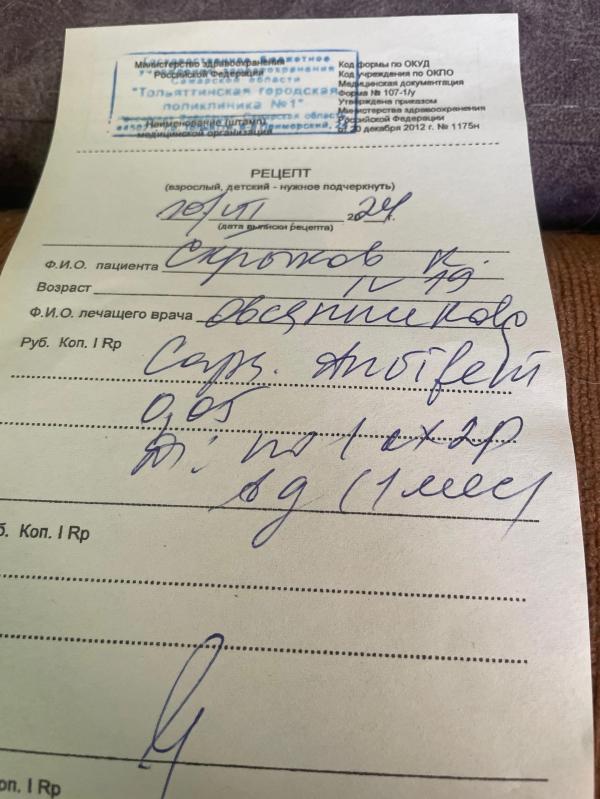 Министерство здравоохранения
Российской Федерации
Самарской области
"Тольяттинская городская
поликлиника №1"
Наименование (штамп)
медицинской организации
Код формы по ОКУД
Код учреждения по ОКПО
Медицинская документация
Форма № 107-1/у
Утверждена приказом
Министерства здравоохранения
Российской Федерации
от 20 декабря 2012 г. № 1175н
РЕЦЕПТ
(взрослый, детский - нужное подчеркнуть)
10/VII 2024г.
(дата выписки рецепта)
Ф.И.О. пациента К.
Возраст
Ф.И.О. лечащего врача Овсянникова
Руб. Коп. I Rp Caps.
0,05
по 1 к х 2р
в д (1 мес)
б. Коп. I Rp
оп. I Rp